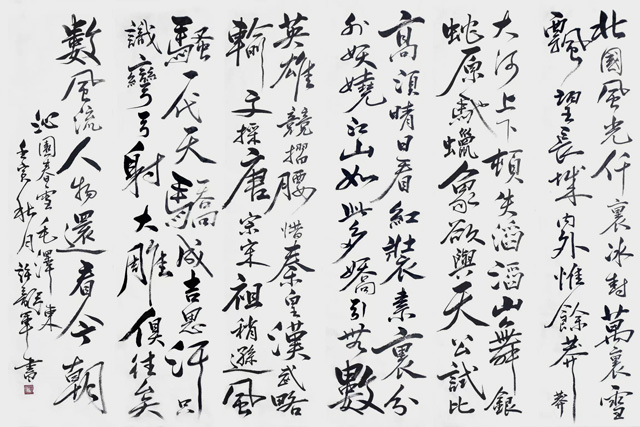 北國風光仟裏冰封萬裏雪
飄望長城内外惟餘莽莽
大河上下頓失滔滔山舞銀
蛇原馳蠟象欲與天公試比
高須晴日看紅裝素裹分
外妖嬈江山如此多嬌引無數
英雄競摺腰惜秦皇漢武略
輸文採唐宗宋祖稍遜風
騷一代天驕成吉思汗只
識彎弓射大雕俱往矣
數風流人物還看今朝
沁園春雪毛澤東
壬寅秋月軍書